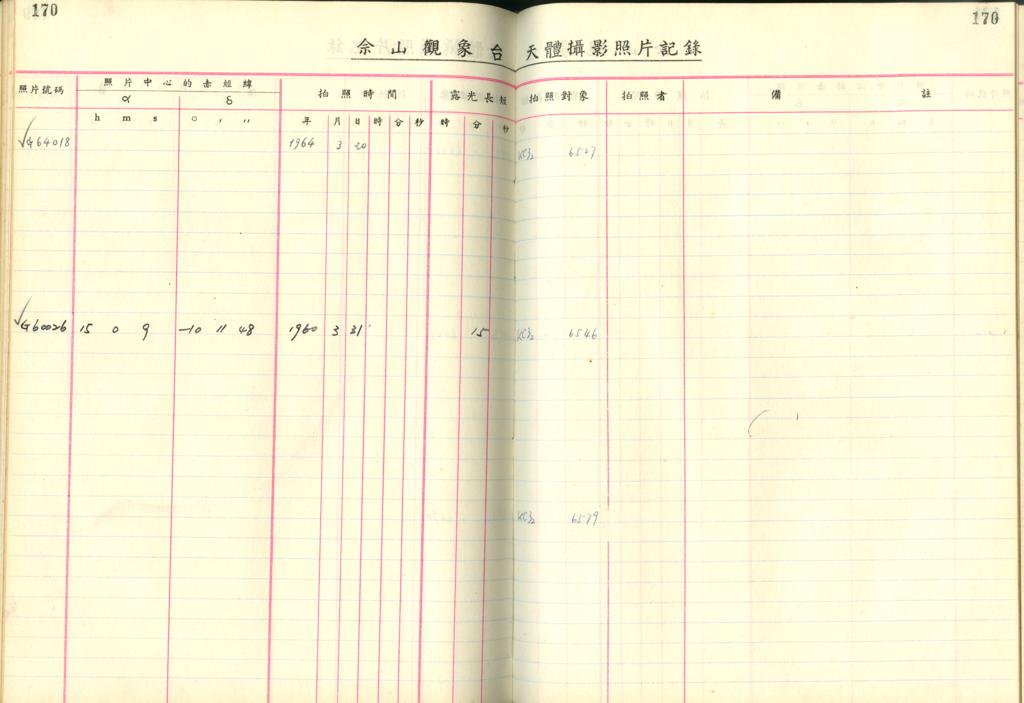 170 170
佘山觀象台天體攝影照片記錄
照片號碼 照片中心的赤經緯 拍照時間 露光長短 拍照對象 拍照者 備註
α δ
h m s ° ′ ″ 年 月 日 時 分 秒 時 分 秒
G64018 1964 3 20 6527
G60026 15 0 9 -10 11 48 1960 3 31 15 6546
6579